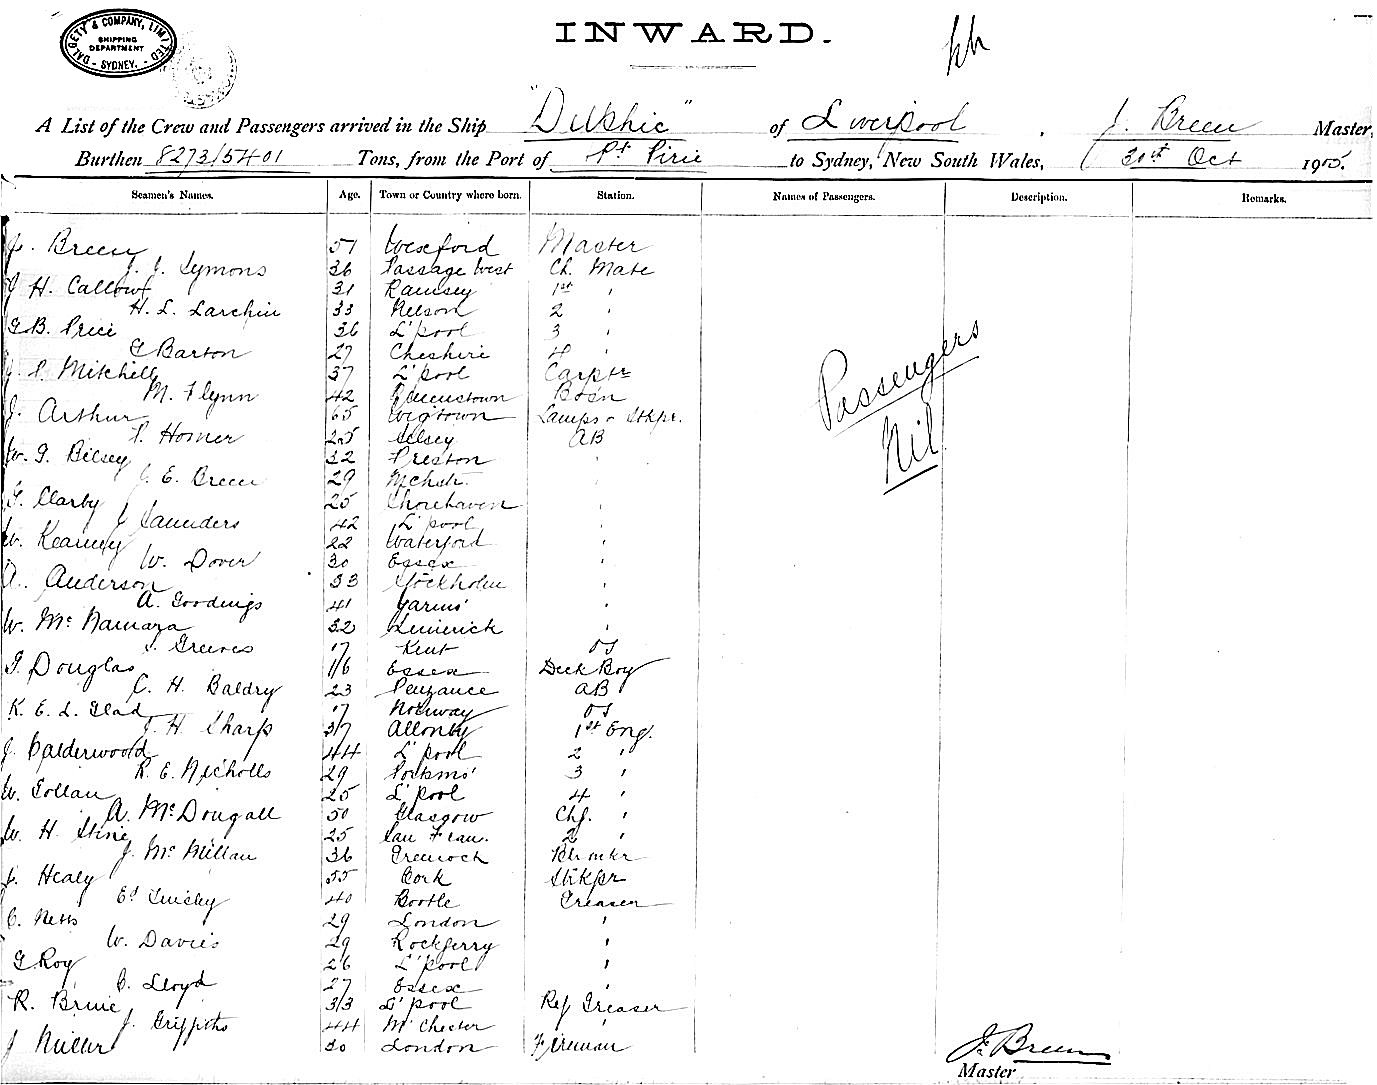 DALGETY & COMPANY, LIMITED
SHIPPING
DEPARTMENT
- SYDNEY. -
INWARD.
A List of the Crew and Passengers arrived in the Ship "Delphic" of Liverpool, J. Breen Master,
Burthen 8273/5401 Tons, from the Port of Pt Pirie to Sydney, New South Wales, 30th Oct 1905.
Seamen's Names. Age. Town or Country where born. Station. Names of Passengers. Description. Remarks.
J. Breen 57 Wexford Master
J. J. Symons 36 Passage West Ch. Mate
J H. Callow 31 Ramsey 1st "
H. L. Larchin 33 Nelson 2 "
G B. Price 36 L'pool 3 "
G Barton 27 Cheshire 4 "
J. P. Mitchell 37 L'pool Carptr
M. Flynn 42 Queenstown Bosn
J. Arthur 65 Wigtown Lamps & Stkpr.
P. Homer 25 Selsey AB
W. G. Bilsey 32 Preston "
J. E. Breen 29 Mchstr. "
G. Clarby 25 Shorehaven "
J Saunders 42 L'pool "
W. Kearney 22 Waterford "
W. Dover 30 Essex "
A. Anderson 33 Stockholm "
A. Goodings 41 Yarmo' "
W. McNamara 32 Limerick "
Greeves 17 Kent OS
G. Douglas 16 Essex Deck Boy
C. H. Baldry 23 Penzance AB
K. E. L. Glad 17 Norway OS
J. H. Sharp 37 Allonby 1st Eng.
J. Calderwood 44 L'pool 2 "
R. E. Nicholls 29 Portsmo' 3 "
W. Gollan 25 L'pool 4 "
A. McDougall 50 Glasgow Chf. "
W. H. Stine 25 San Fran. 2 "
J. McMillan 36 Greenock
J. Healy 55 Cork Stkpr
Ed Quisby 40 Bootle Greaser
C. Netts 29 London "
W. Davies 29 Rockferry "
G. Roy 26 L'pool "
C. Lloyd 27 Essex "
R. Brine 33 L'pool Ref Greaser
J. Griffiths 44 McChester "
J Miller 30 London Fireman
Passengers
Nil
J. Breen
Master